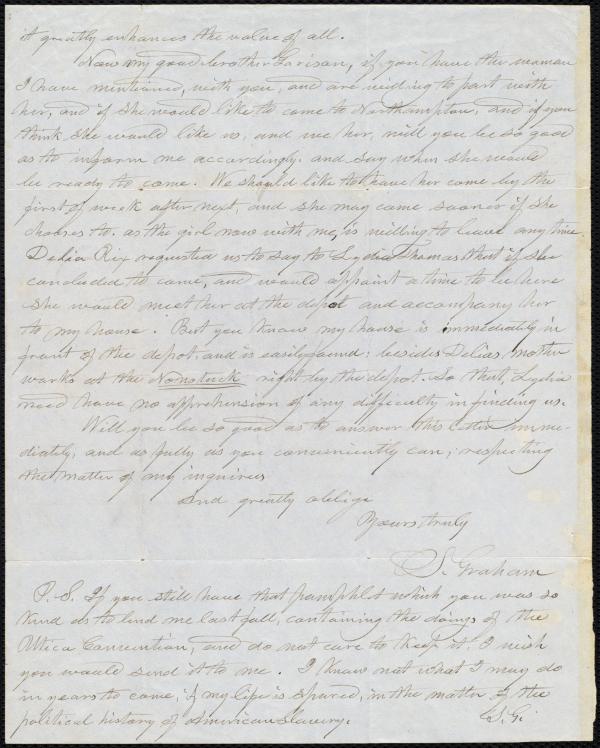 it greatly enhances the value of all.
Now my good brother Garison, if you have the woman
I have mentioned, with you, and are willing to part with
her, and if she would like to come to Northampton, and if you
think she would like us, and we her, will you be so good
as to inform me accordingly. and say when she would
be ready to come. We should like to have her come by the
first of week after next, and she may come sooner if she
chooses to. as the girl now with me, is willing to leave any time.
Delia Rix requested us to say to Lydia Thomas that if she
concluded to come, and would appoint a time to be here
she would meet her at the depot and accompany her
to my house. But you know my house is immediately in
front of the depot and is easily found: besides Delias mother
works at the Nonotuck right by the depot. So that, Lydia
need have no apprehension of any difficulty in finding us.
Will you be so good as to answer this letter imme-
diately, and as fully as you conveniently can, respecting
the matter of my inquiries
and greatly oblige
Yours truly
S. Graham
P.S. If you still have that pamphlet which you was so
kind as to lend me last fall, containing the doings of the
Utica Convention, and do not care to keep it, I wish
you would send it to me. I know not what I may do
in years to come, if my life is spared, in the matter of the
political history of American slavery. S.G.